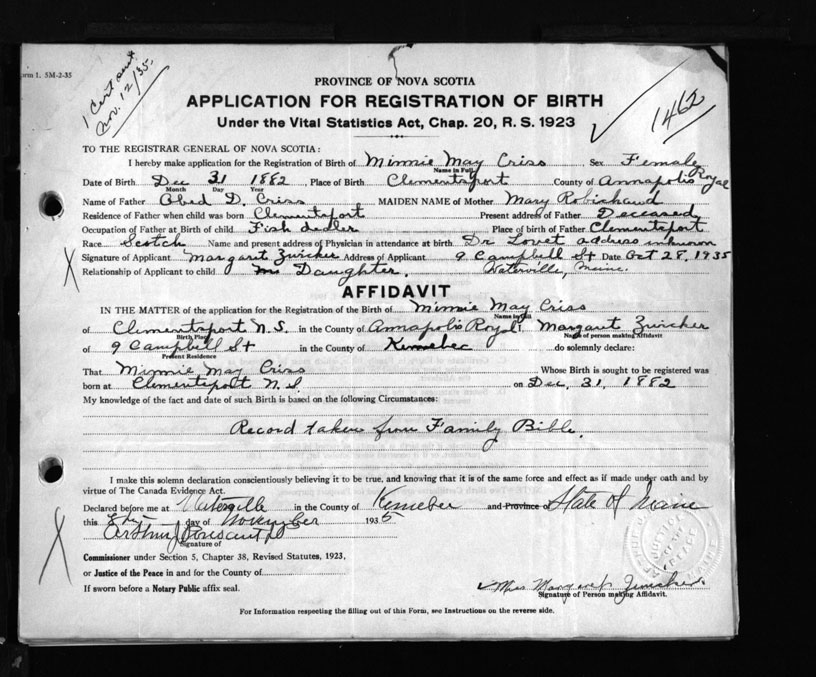 orm 1. 5M-2-35
1 Cert sent
Nov. 12/35.
1462
PROVINCE OF NOVA SCOTIA
APPLICATION FOR REGISTRATION OF BIRTH
Under the Vital Statistics Act, Chap. 20, R. S. 1923
TO THE REGISTRAR GENERAL OF NOVA SCOTIA:
I hereby make application for the Registration of Birth of Minnie May Criss Sex Female
Name in Full
Date of Birth Dec 31 1882, Place of Birth Clementsport County of Annapolis Royal
Month Day Year
Name of Father Obed D. Criss MAIDEN NAME of Mother Mary Robichaud
Residence of Father when child was born Clementsport Present address of Father Deceased
Occupation of Father at Birth of child Fish dedler Place of birth of Father Clementsport
Race Scotch Name and present address of Physician in attendance at birth Dr Lovet address unknown
Signature of Applicant Margaret Zwicker Address of Applicant 9 Campbell St Date Oct 28, 1935
Relationship of Applicant to child Daughter. Waterville, Maine.
AFFIDAVIT
IN THE MATTER of the application for the Registration of the Birth of Minnie May Criss
Name in Full
of Clementsport N.S. in the County of Annapolis Royal I, Margaret Zwicker
Birth Place Name of person making Affidavit
of 9 Campbell St in the County of Kennebec do solemnly declare:
Present Residence
That Minnie May Criss Whose Birth is sought to be registered was
born at Clementsport N.S. on Dec. 31, 1882
My knowledge of the fact and date of such Birth is based on the following Circumstances:
Record taken from Family Bible.
I make this solemn declaration conscientiously believing it to be true, and knowing that it is of the same force and effect as if made under oath and by
virtue of The Canada Evidence Act.
Declared before me at Waterville in the County of Kennebec and Province of State of Maine
this day of November 1935
Arthur
Signature of
Commissioner under Section 5, Chapter 38, Revised Statutes, 1923,
or Justice of the Peace in and for the County of
If sworn before a Notary Public affix seal.
Mrs Margaret Zwicker
Signature of Person making Affidavit.
For Information respecting the filling out of this Form, see Instructions on the reverse side.